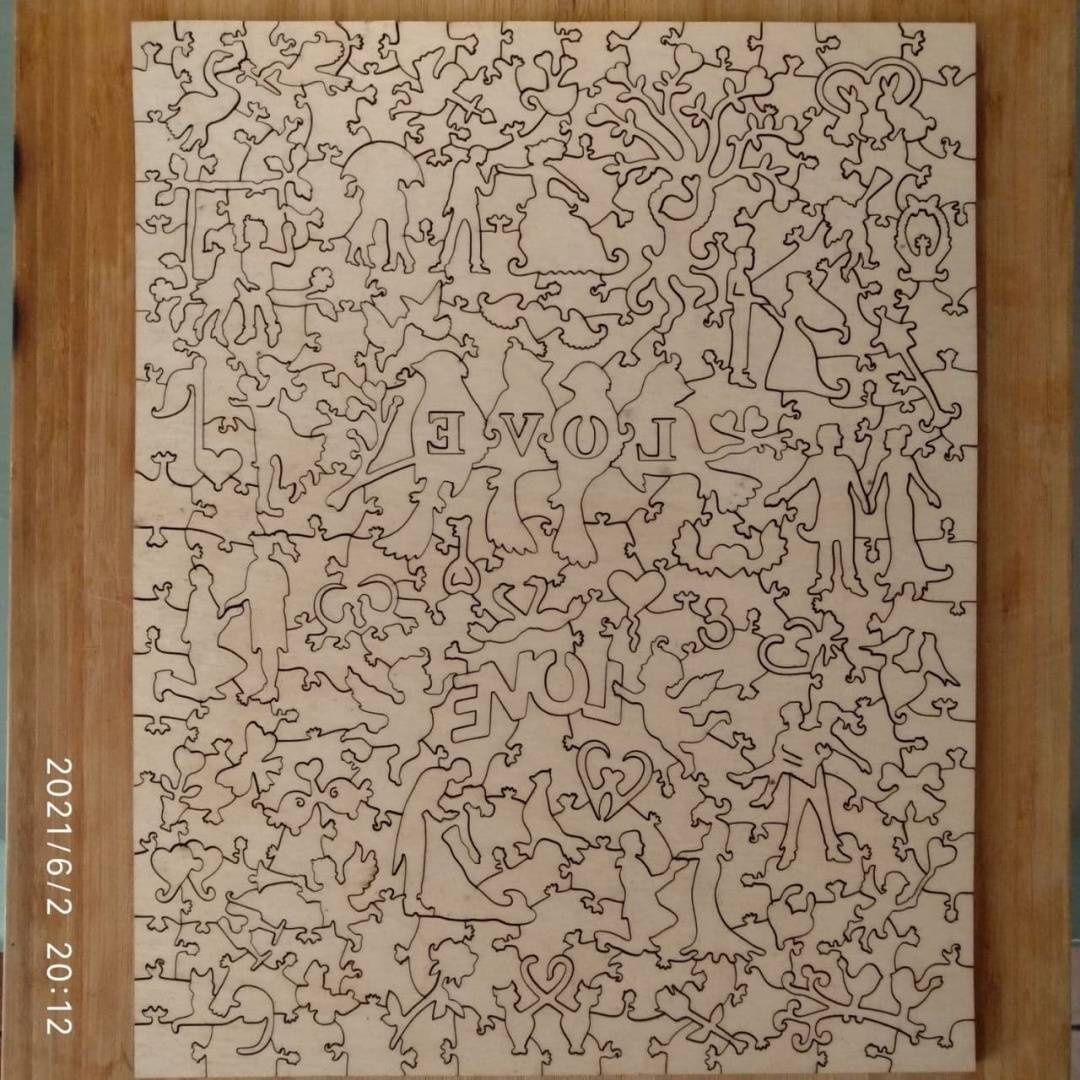 LOVE
LOVE
2021/6/2 20:12